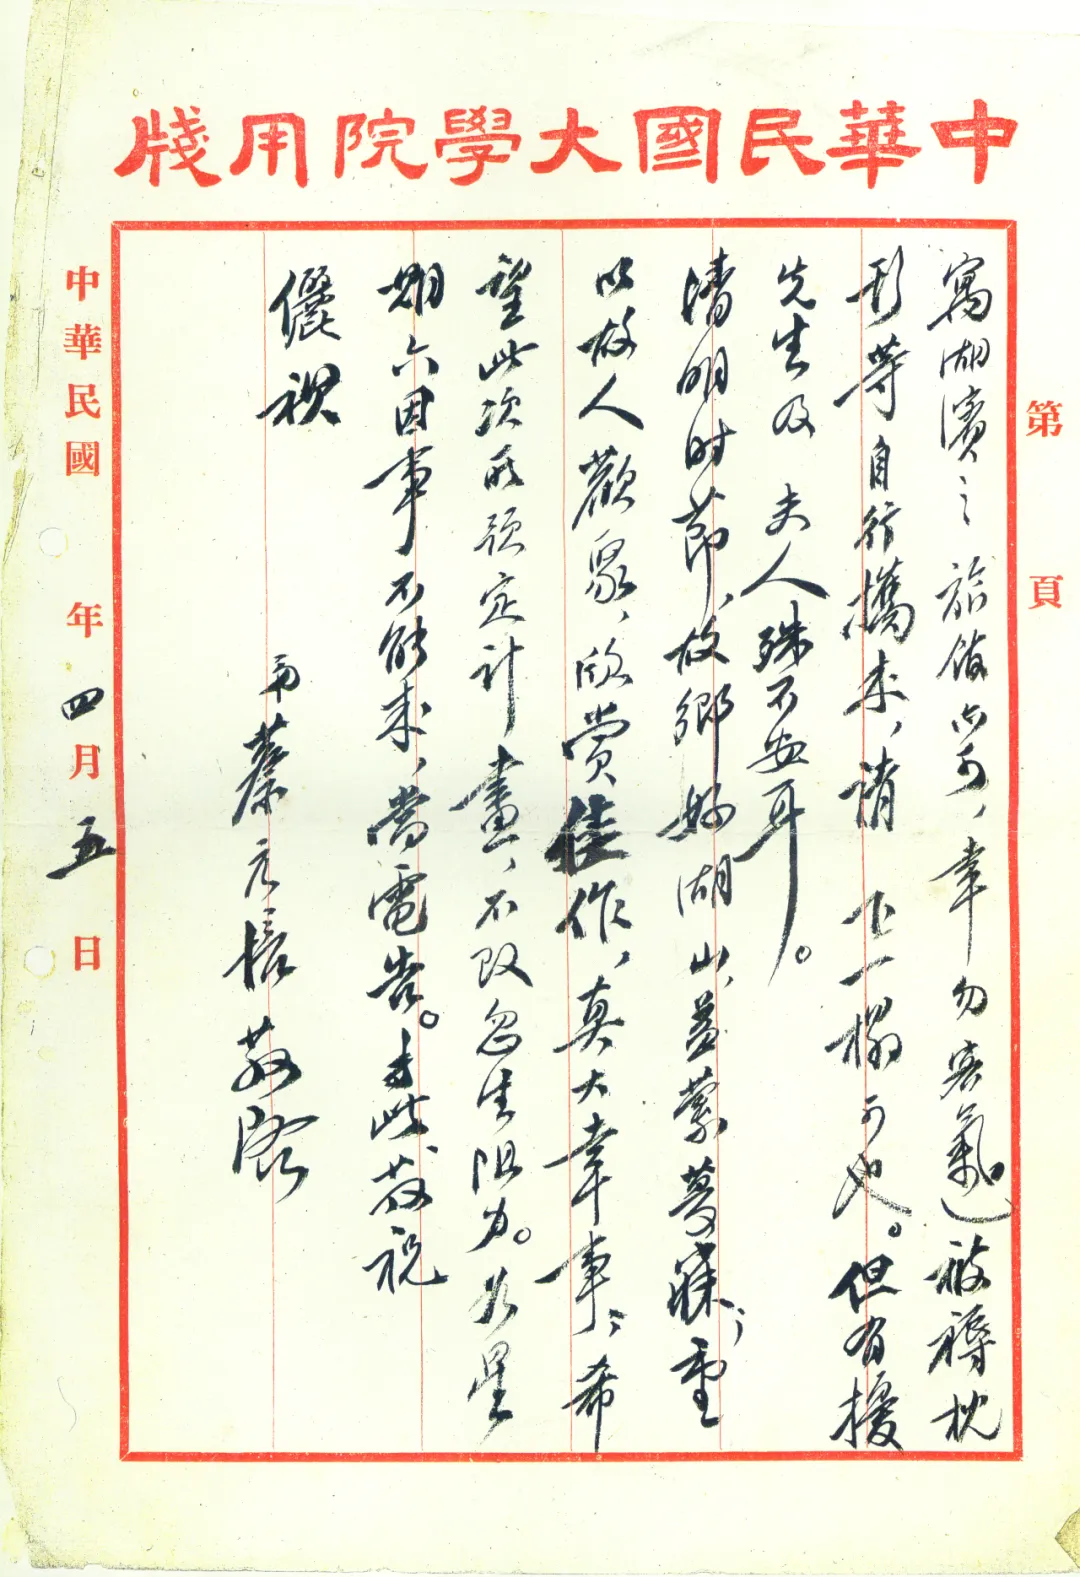 中華民國大學院用牋
第 頁
寓湖濱之旅館亦可，幸勿客氣。被褥枕
形等自行攜來，請下一榻可也。但有擾
先生及 夫人殊不安耳。
清明時節，故鄉好湖山，益縈夢寐；重
以故人歡聚，欣賞佳作，真大幸事；希
望此次所預定計畫，不致忽生阻力。如星
期六因事不能來，當電告。专此，敬祝
儷祺
弟蔡元培敬啓
中華民國 年四月五日